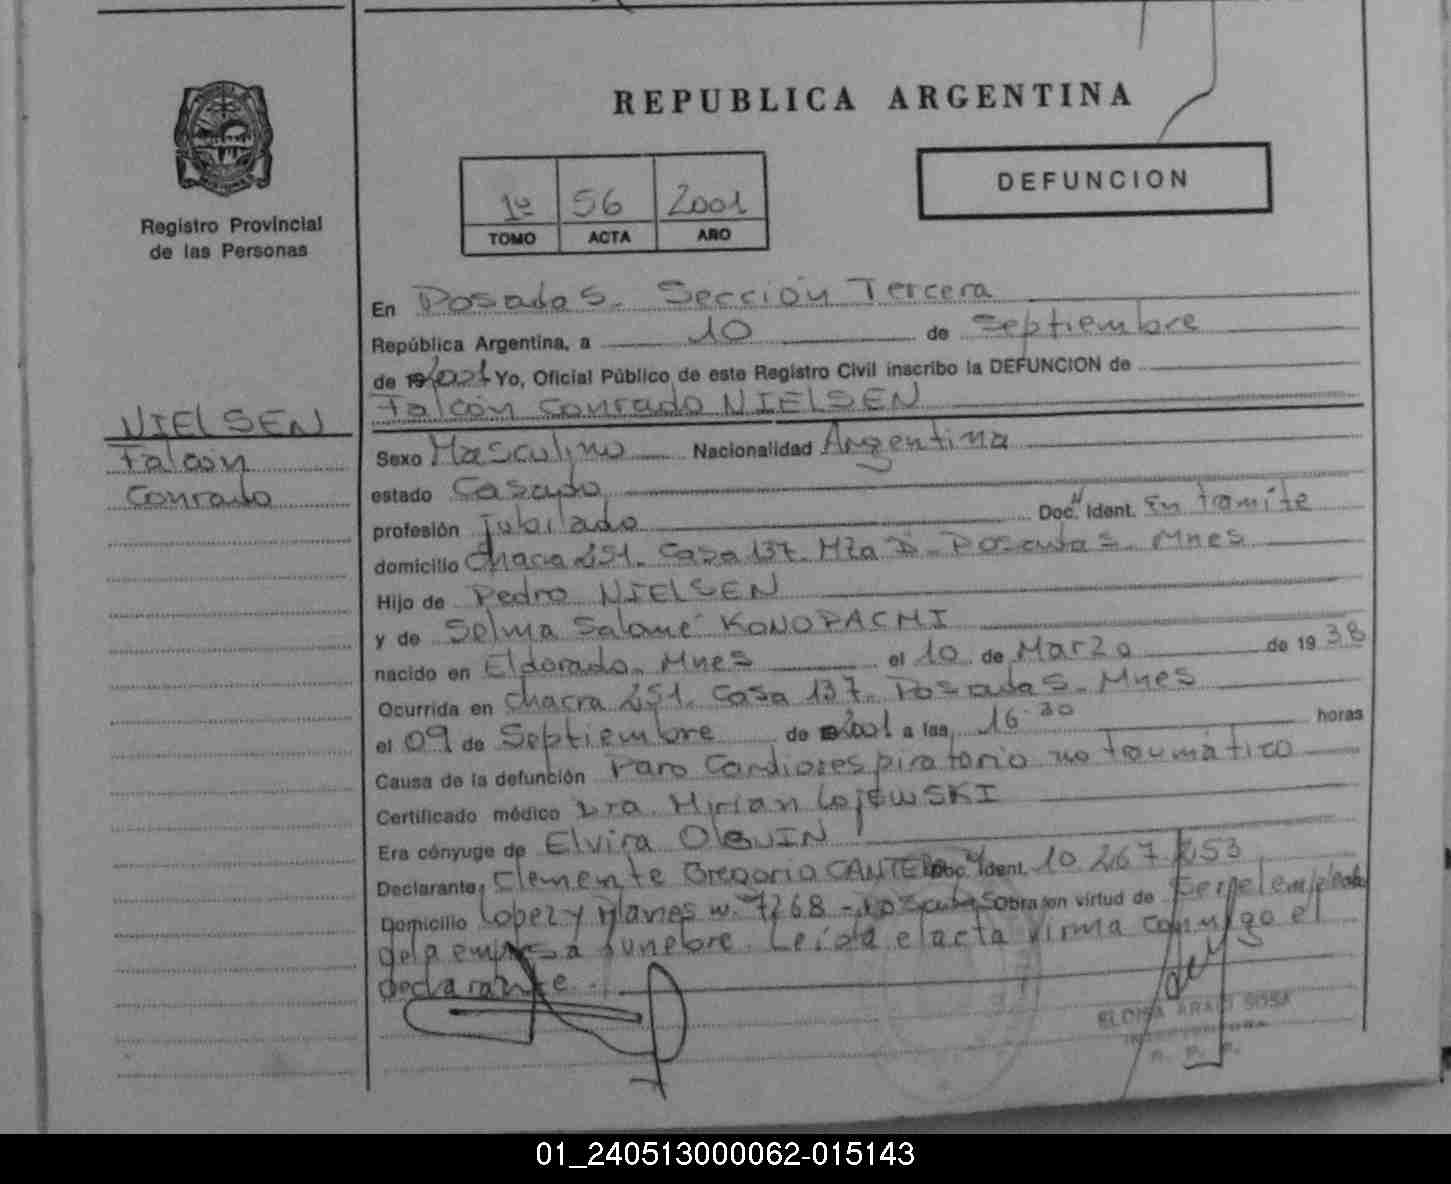 REPUBLICA ARGENTINA
DEFUNCION
Registro Provincial
de las Personas
1º 56 2001
TOMO ACTA AÑO
En Posadas. Sección Tercera
República Argentina, a 10 de Septiembre
de 2001 Yo, Oficial Público de este Registro Civil inscribo la DEFUNCION de
Falcón Conrado NIELSEN
NIELSEN
Falcón
Conrado
Sexo Masculino Nacionalidad Argentina
estado Casado
profesión Jubilado Doc. Ident. En tramite
domicilio Chacra 251. Casa 137. Mza D. Posadas. Mnes
Hijo de Pedro NIELSEN
y de Selma Salomé KONOPACKI
nacido en Eldorado. Mnes el 10 de Marzo de 1938
Ocurrida en Chacra 251. Casa 137. Posadas. Mnes
el 09 de Septiembre de 2001 a las 16.30 horas
Causa de la defunción Paro Cardiorespiratorio no traumático
Certificado médico Dra. Mirian LojewSKI
Era cónyuge de Elvira OLGUIN
Declarante, Clemente Gregorio CANTERO Doc. Ident. 10.267.253
Domicilio Lopez y Planes n. 7268 - Posadas Obra en virtud de Ser el empleado
de la empresa funebre. Leída el acta firma conmigo el
declarante.
ELOISA ARACI SOSA
R. P. P.
01_240513000062-015143